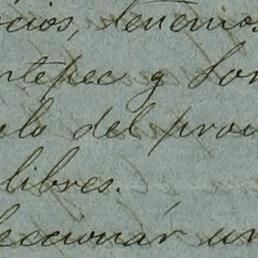 ocios, tenemos
ntepec y Son
ulo del prov
libres.
leccionar un